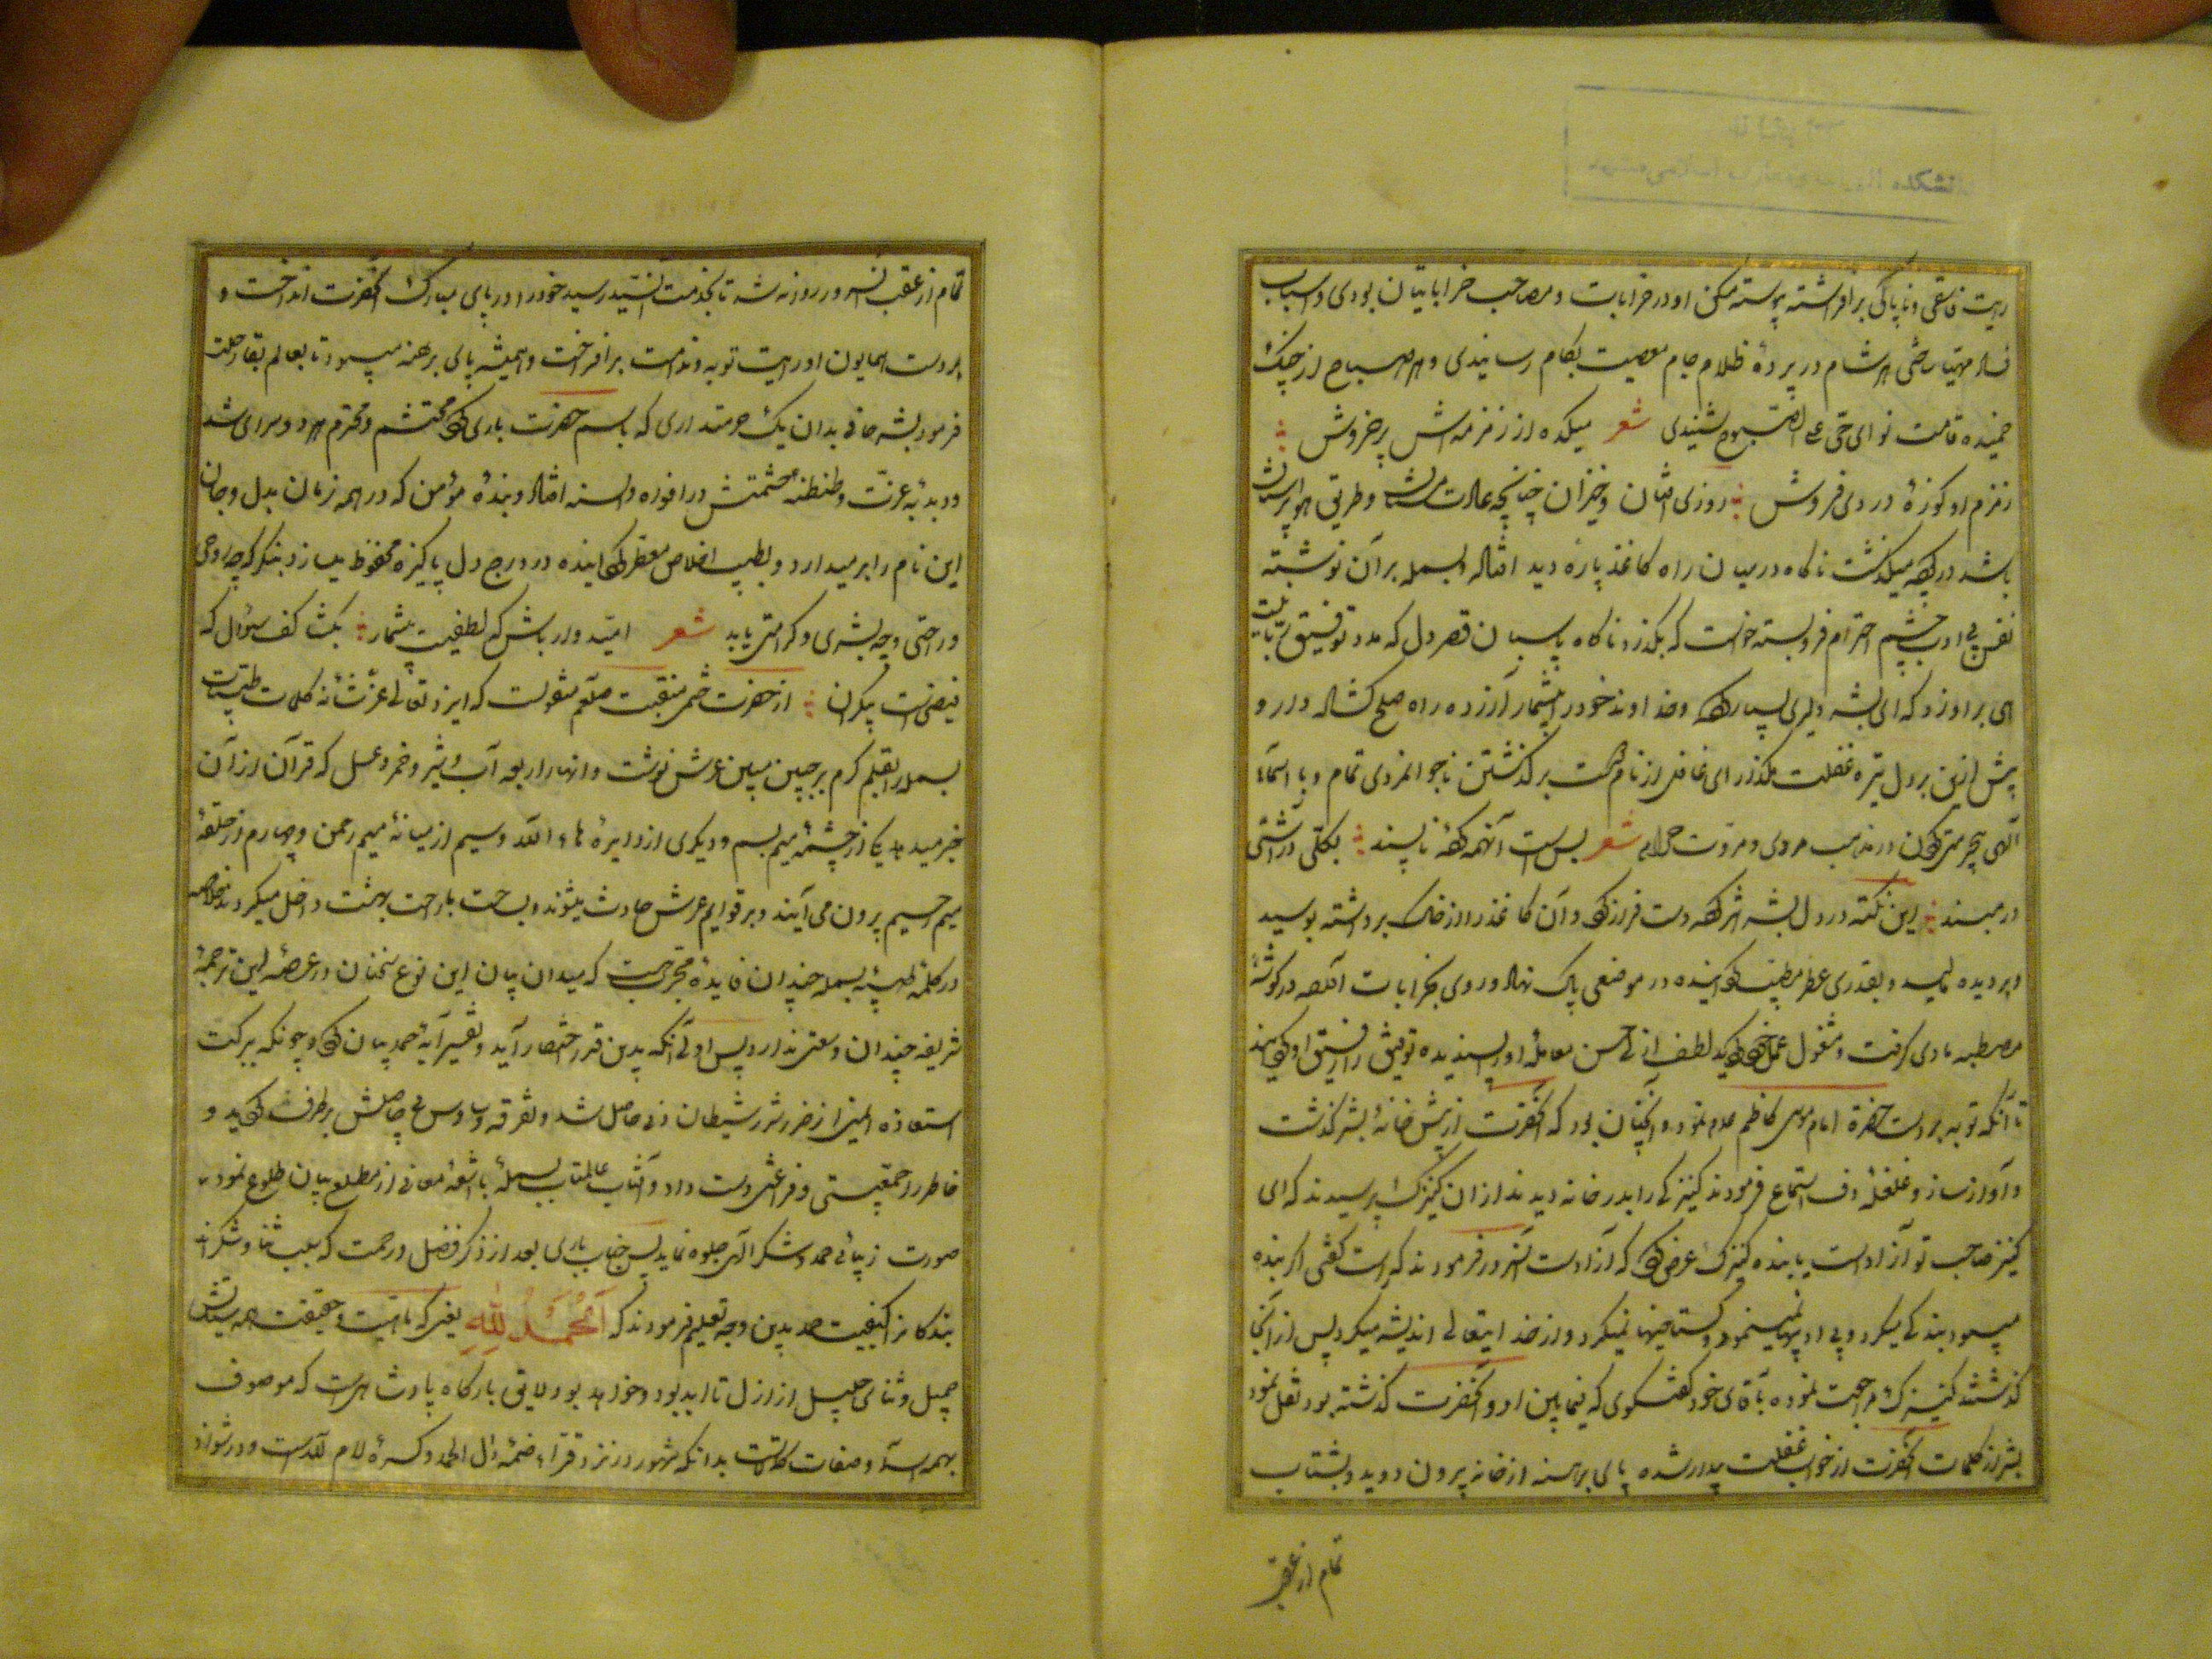 رایت فاسقی و ناپاکی برافراشته پیوسته مسکن او در خرابات و مصاحب خراباتیان بودی و اسباب
فساد مهیا ساختی هر شام در پردهٔ ظلام جام معصیت بکام رسانیدی و هر صباح از چنک
خمیده قامت نوای حی علی الصبوح شنیدی شعر میکده از زمزمه‌اش پرخروش
زمزم او کوزهٔ دردی فروش روزی افتان و خیزان چنانچه عادت مستان و طریق هواپرستان
باشد در کوچه میگذشت ناکاه در میان راه کاغذ پارهٔ دید افتاده و بسمله بر آن نوشته
نفس بی ادب چشم احترام فروبسته خواست که بگذرد ناکاه پاسبان قصر دل که مدد توفیق
برآورد که ای بشر دلیری بسیار کرده و خداوند خود را بیشمار آزرده راه صلح کشاده دار و
پیش ازین بر دل تیره غفلت مگذار ای غافل از نام دوست برگذشتن ناجوانمردی تمام و با اسماء
الهی بیحرمتی کردن در مذهب مردی و مروت حرام شعر بس است آنهمه کرده ناپسند در آشتی
در مبند این نکته در دل بشر اثر کرده دست فراز کرد و آن کاغذ را از خاک برداشته بوسید
و بر دیده مالید و بقدری عطر مطیب کردانیده در موضعی پاک نهاد و روی بخرابات آورد در کوشهٔ
مصطبه ماوی گرفت و مشغول عمل خود کردید لطف ازلی حسن معاملهٔ او پسندیده توفیق را رفیق او کردانید
تا آنکه توبه بر دست حضرة امام موسی کاظم علیه السلام نمود و آنچنان بود که آنحضرت از پیش خانهٔ بشر گذشت
و آواز ساز و غلغلهٔ دف استماع فرمودند کنیزکی را بدر خانه دیدند از آن کنیزک پرسیدند که ای
کنیز صاحب تو آزاد است یا بنده کنیزک عرض کرد که آزاد است آن سرور فرمودند که راست گفتی اگر بنده
میبود بندکی میکرد و بی ادبیها نمینمود و گستاخیها نمیکرد و از خدایتعالی اندیشه میکرد پس از آنجا
گذشتند کنیزک مراجعت نموده بآقای خود گفتگوی که فیمابین او و آنحضرت گذشته بود نقل نمود
بشر از کلمات آنحضرت از خواب غفلت بیدار شده پای برهنه از خانه بیرون دوید و بشتاب
تمام از عقب
تمام از عقب آن سرور روانه شد تا بخدمت آن سید رسید خود را در پای مبارک آنحضرت انداخت و
بر دست همایون او رایت توبه و ندامت برافراخت و همیشه پای برهنه میبود تا بعالم بقا رحلت
فرمود بشر حافی بدان یک حرمتداری که باسم حضرت باری کرد محتشم و محترم هر دو سرای شد
و دبدبهٔ عزت و طنطنهٔ حشمتش در افواه و السنه افتاد و بندهٔ مؤمن که در همه زمان بدل و جان
این نام را برمیدارد و بطیب اخلاص معطر کردانیده در درج دل پاکیزه محفوظ میسازد بنگر که چه روحی
و راحتی و چه بشری و کرامتی یابد شعر امیدوار باش که لطفیست بیشمار بکشا کف سؤال که
فیضی است بیکران از حضرت ختمی منقبت صلعم منقولست که ایزد تعالی عز شانه کلمات طیبات
بسمله را بقلم کرم بر جبین مبین عرش نوشت و انهار اربعه آب و شیر و خمر و عسل که قرآن از آن
خبر میدهد یکی از چشمهٔ میم بسم و دیگری از دایرهٔ هاء الله و سیم از میانهٔ میم رحمن و چهارم از حلقهٔ
میم رحیم بیرون می‌آیند و بر قوایم عرش حادث میشوند و بساحت باراحت بهشت داخل میکردند خلاصه
در کلمهٔ طیبه بسمله چندان فایده مندرجست که میدان بیان این نوع سخنان در عرصه این ترجمهٔ
شریفه چندان وسعتی ندارد پس اولی آنکه بدین قدر اختصار آید و تفسیر آیهٔ حمد بیان کرد و چونکه ببرکت
استعاذه ایمنی از ضرر شر شیطان دنی حاصل شد و تفرقه وساوس بی حاصلش برطرف کردید و
خاطر را جمعیتی و فراغتی دست داد و آفتاب عالمتاب بسمله با شعهٔ معانی از مطلع بیان طلوع نمود
صورت زیبائی حمد و شکر الهی جلوه نماید پس جناب باری بعد از ذکر فضل و رحمت که سبب ثنا و شکر است
بندکانرا کیفیت حمد بدین وجه تعلیم فرمودند که اَلْحَمْدُ لِلّٰهِ یعنی که ماهیت و حقیقت همه ستایش
جمیل و ثنای جلیل از ازل تا ابد بود و خواهد بود لایق بارگاه پادشاهیست که موصوف
بهمه اسما و صفات کمالاتست بدانکه مشهور در نزد قراء ضمهٔ دال الحمد و کسرهٔ لام لله است و در شواذ